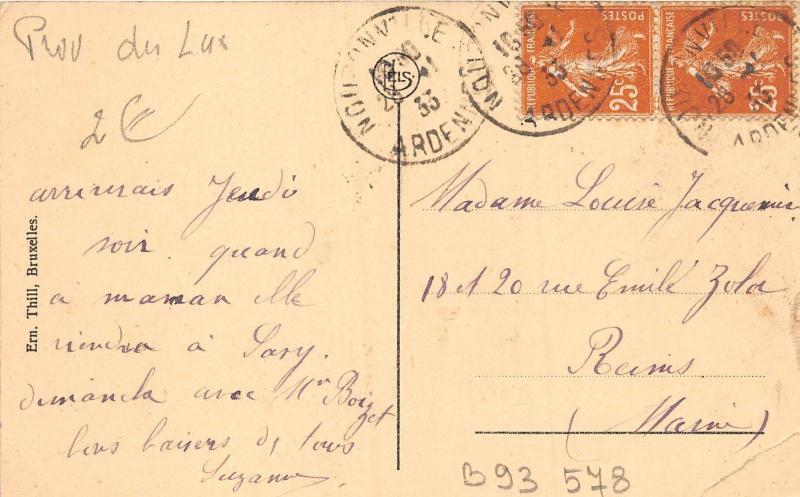 Prov du Lux
2€
arriverais Jeudi
soir quand
a maman elle
viendra à
dimanche avec Mr Boizet
bons baisers de tous
Suzanne
Ern. Thill, Bruxelles.
ELS
NOUZONVILLE
ARDENNES
33
POSTES
REPUBLIQUE FRANÇAISE
25c
POSTES
REPUBLIQUE FRANÇAISE
25c
Madame Louise Jacquemin
18 et 20 rue Emile Zola
Reims
(Marne)
B93 578